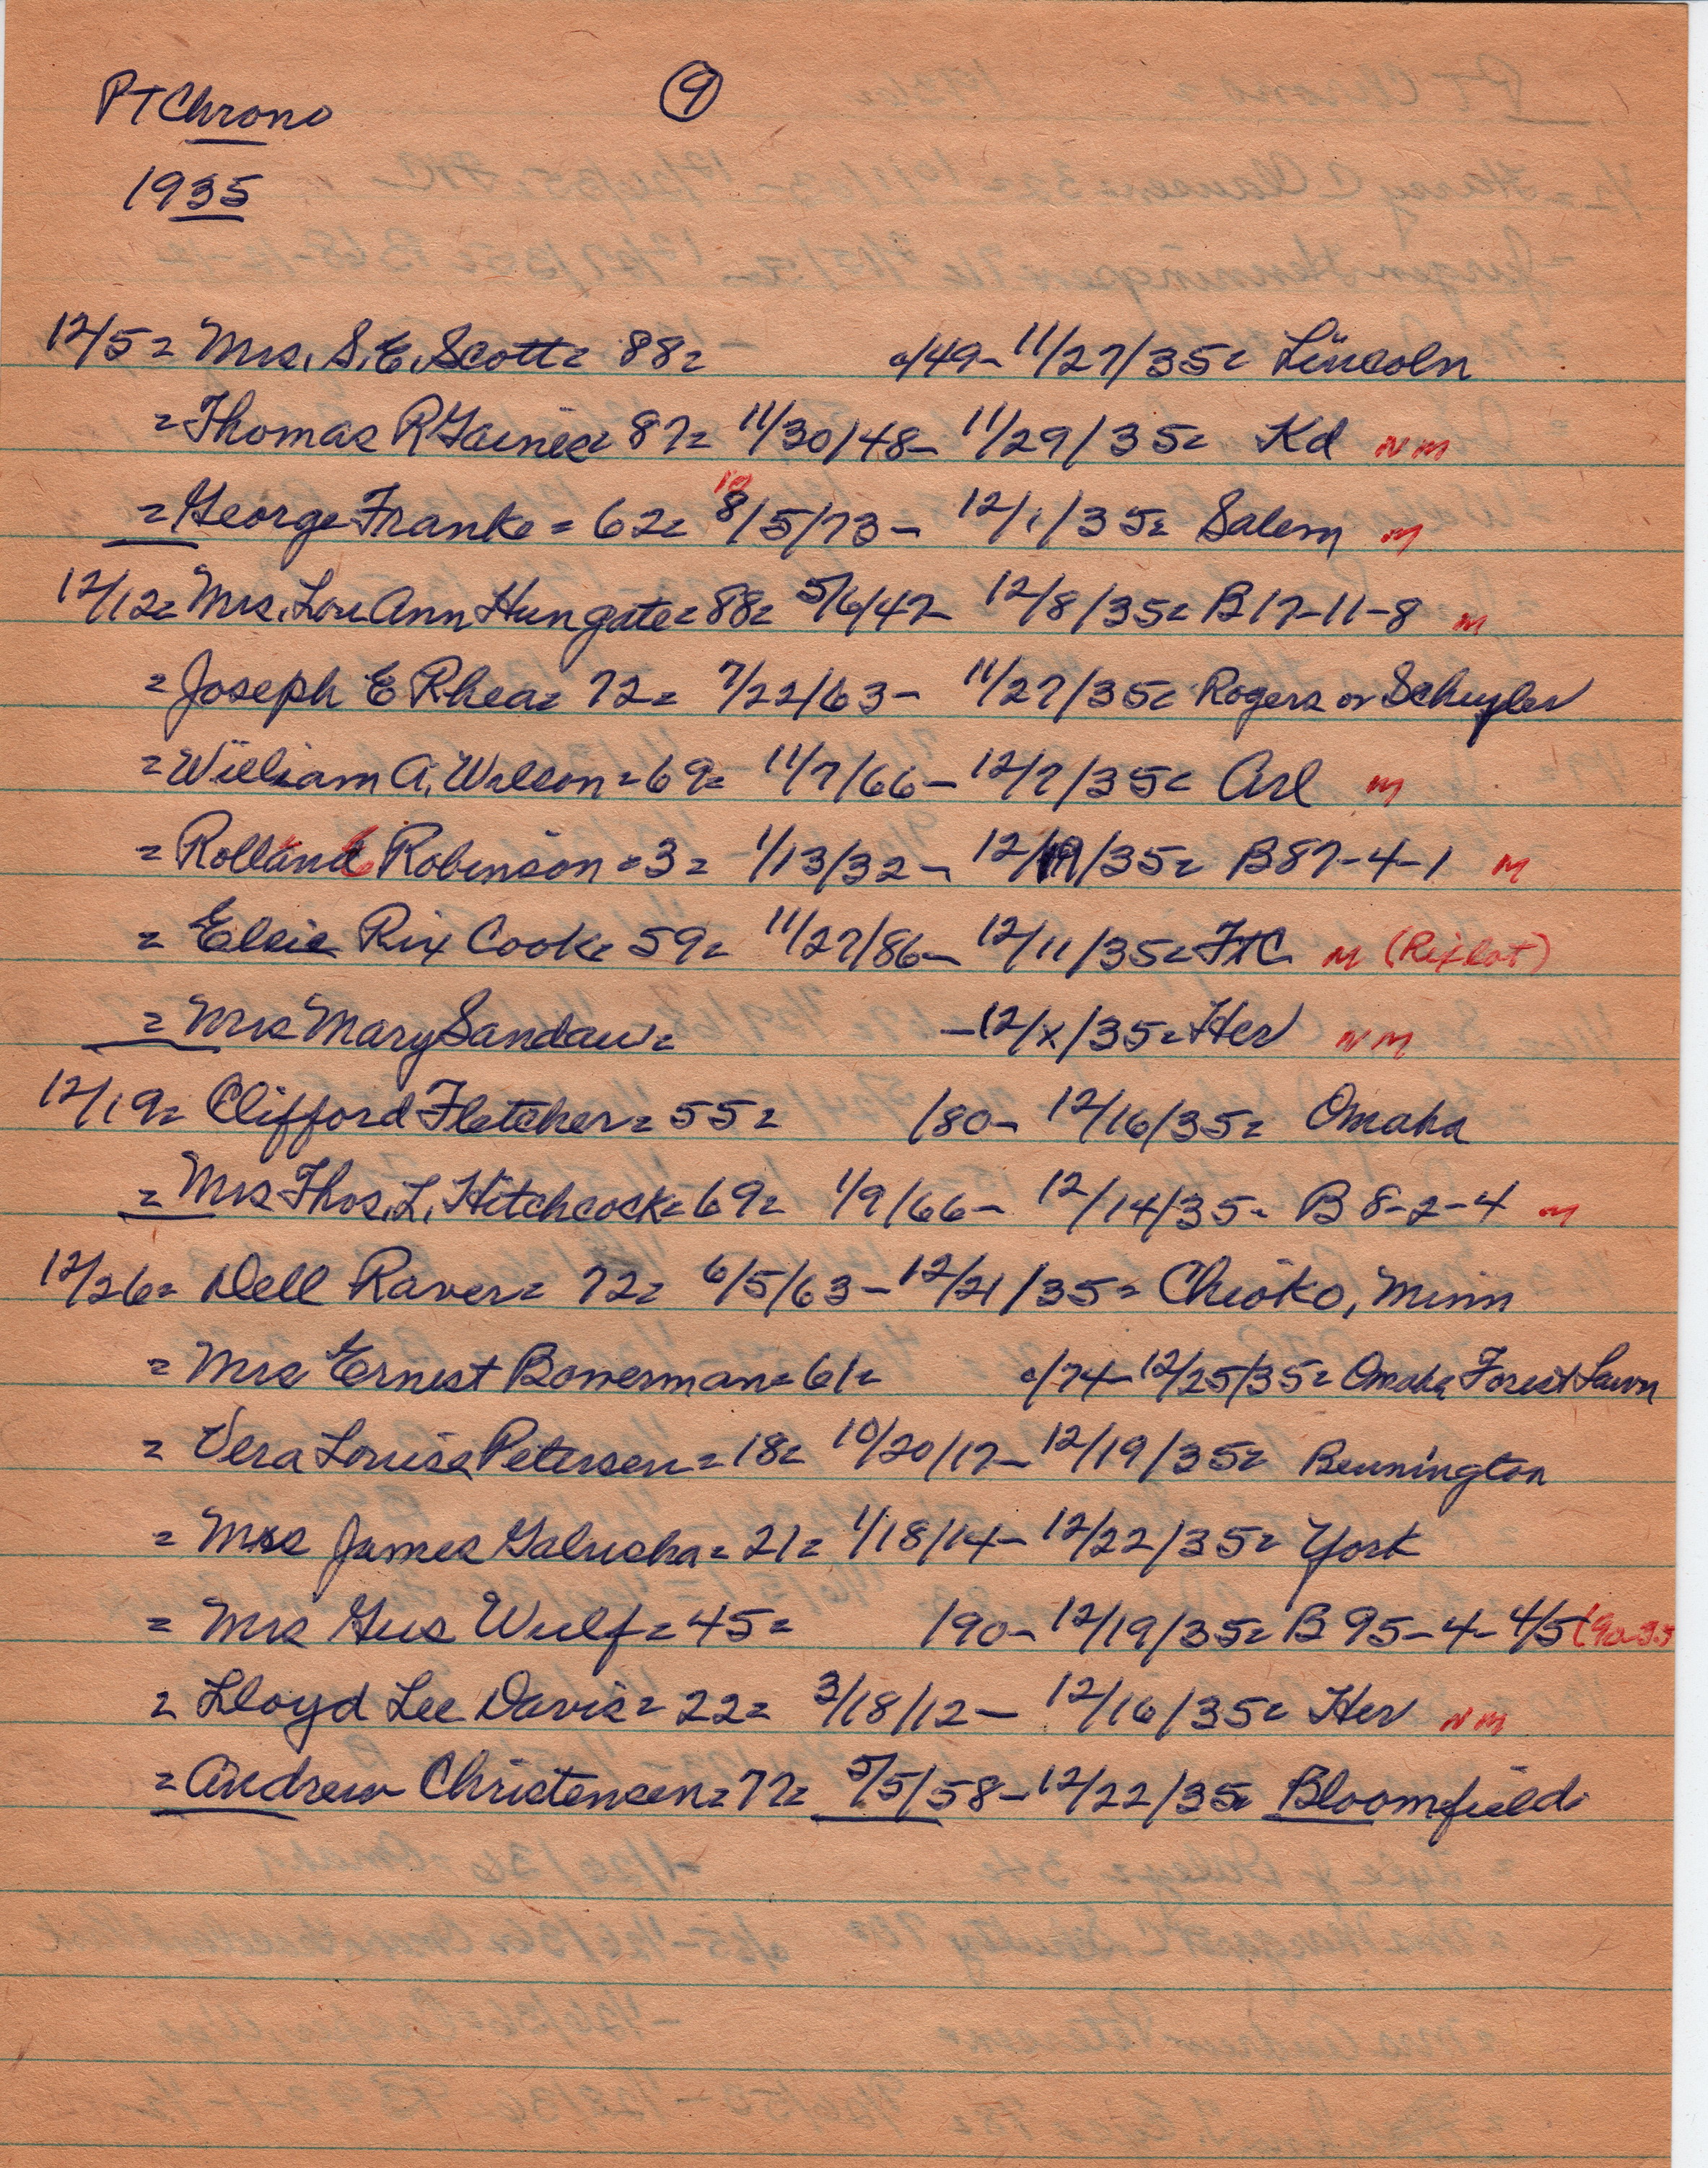 PT Chrono 9
1935
12/5= Mrs. S.E. Scott= 88= c/49- 11/27/35= Lincoln
=Thomas R Gaines= 87= 11/30/48- 11/29/35= Kd NM
10
=George Franke= 62= 8/5/73- 12/1/35= Salem M
12/12= Mrs. Lou Ann Hungate= 88= 5/6/47- 12/8/35= B17-11-8 M
=Joseph E Rhea= 72= 7/22/63- 11/27/35= Rogers or Schuyler
=William A. Wilson=69= 11/7/66- 12/7/35= Arl M
=Rolland Robinson=3= 1/13/32- 12/ /35= B87-4-1 M
= Elsie Rix Cook= 59= 11/27/86- 12/11/35= FtC M (Rix lot)
= Mrs Mary Sandau= -12/x/35= Her NM
12/19= Clifford Fletcher= 55= /80- 12/16/35= Omaha
= Mrs Thos. L. Hitchcock=69= 1/9/66- 12/14/35- B 8-2-4 M
12/26= Dell Raver= 72= 6/5/63-12/21/35= Chioko, Minn
= Mrs Ernest Bowerman=61= c/74-12/25/35= Omaha Forest Lawn
= Vera Louise Petersen=18= 10/20/17-12/19/35= Bennington
= Mrs James Galusha=21= 1/18/14- 12/22/35= York
= Mrs Gus Wulf= 45= /90- 12/19/35= B 95-4-4/5
= Lloyd Lee Davis= 22= 3/18/12- 12/16/35= Her NM
=Andrew Christensen=77= 5/5/58-12/22/35= Bloomfield